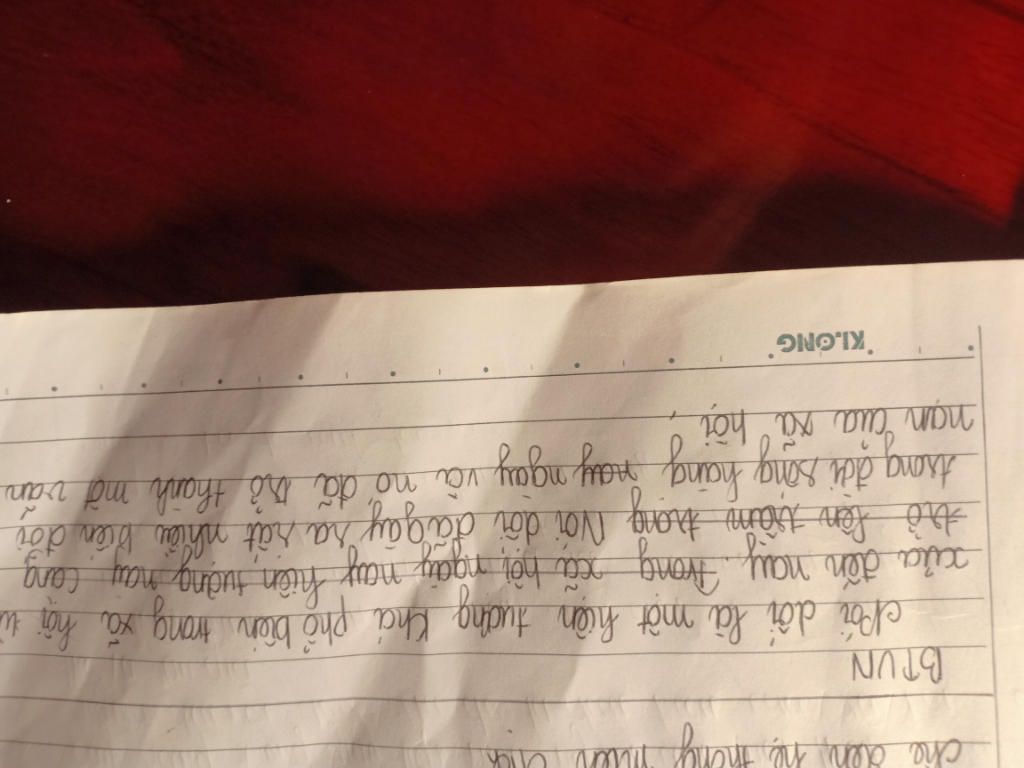 chế đến hệ thống miễn dịch
BTVN
Nói dối là một hiện tượng khá phổ biến trong xã hội từ
xưa đến nay. Trong xã hội ngày nay hiện tượng này càng
trở lên trầm trọng Nói dối đã gây ra rất nhiều biến đổi
trong đời sống hàng ngày ngày và nó đã trở thành một vấn
nạn của xã hội.
KLONG